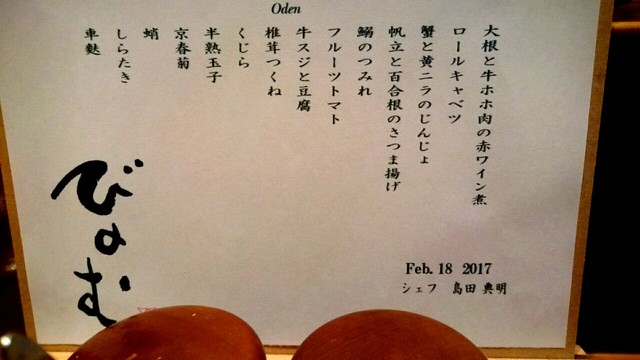 Oden
大根と牛ホホ肉の赤ワイン煮
ロールキャベツ
蟹と黄ニラのじんじょ
帆立と百合根のさつま揚げ
鰯のつみれ
フルーツトマト
牛スジと豆腐
椎茸つくね
くじら
半熟玉子
京春菊
蛸
しらたき
車麩
びのむ
Feb. 18 2017
シェフ 島田 典明